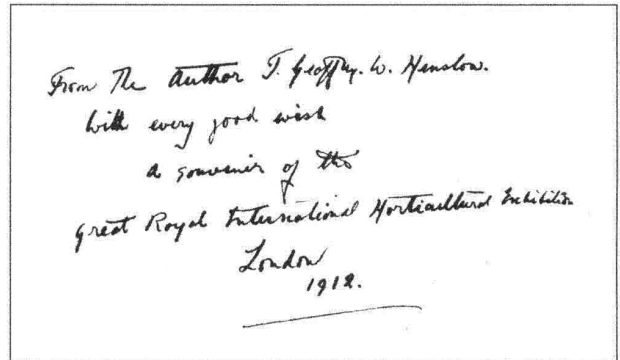 From The Author T. Geoffry. W. Henslow.
With every good wish
a souvenir of the
Great Royal International Horticultural Exhibition
London
1912.